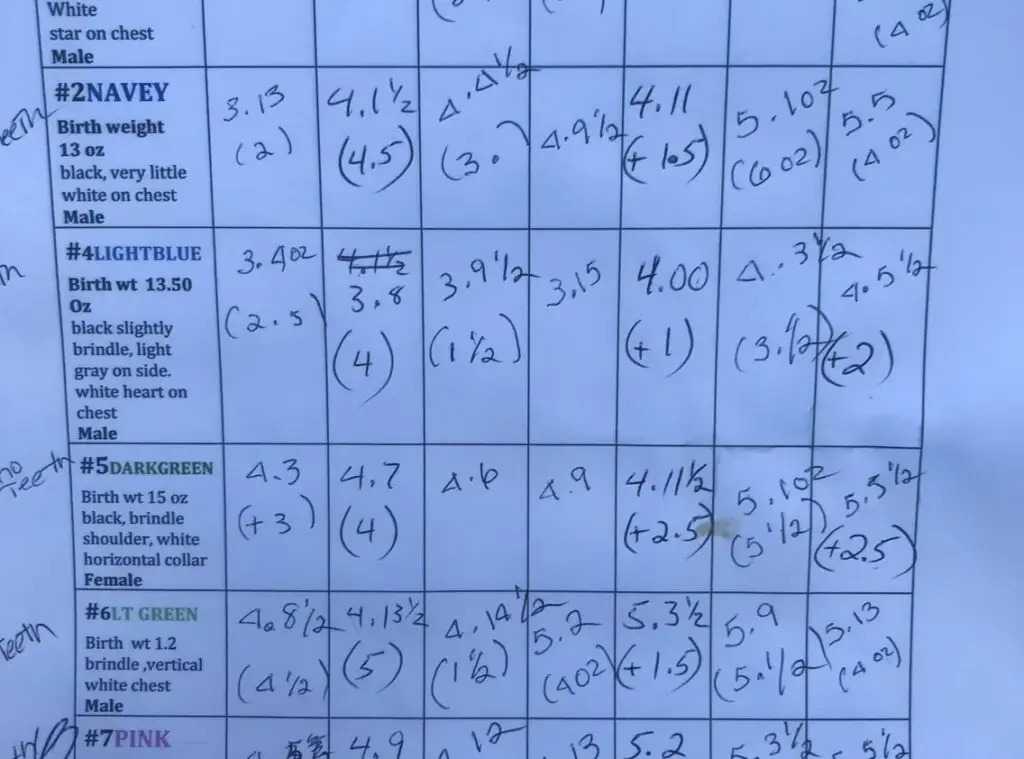 White
star on chest
Male
(4 oz)
#2NAVEY
Birth weight
13 oz
black, very little
white on chest
Male
3.13
(2)
4.1 1/2
(4.5)
4.4 1/2
4.9 1/2
4.11
(+ 1.5)
5.10z
(6 oz)
5.5
(4 oz)
#4LIGHTBLUE
Birth wt 13.50
Oz
black slightly
brindle, light
gray on side.
white heart on
chest
Male
3.4oz
(2.5)
3.8
(4)
3.9 1/2
(1 1/2)
3.15
4.00
(+ 1)
4.3 1/2
(3.1/2)
4.5 1/2
(+2)
no
Teeth
#5DARKGREEN
Birth wt 15 oz
black, brindle
shoulder, white
horizontal collar
Female
4.3
(+3)
4.7
(4)
4.6
4.9
4.11 1/2
(+2.5)
5.10z
(5 1/2)
5.5 1/2
(+2.5)
Teeth
#6LT GREEN
Birth wt 1.2
brindle ,vertical
white chest
Male
4.8 1/2
(4 1/2)
4.13 1/2
(5)
4.14 1/2
(1 1/2)
5.2
(4oz)
5.3 1/2
(+ 1.5)
5.9
(5.1/2)
5.13
(4 oz)
#7PINK
4.9
12
13
5.2
5.3 1/2
5 1/2